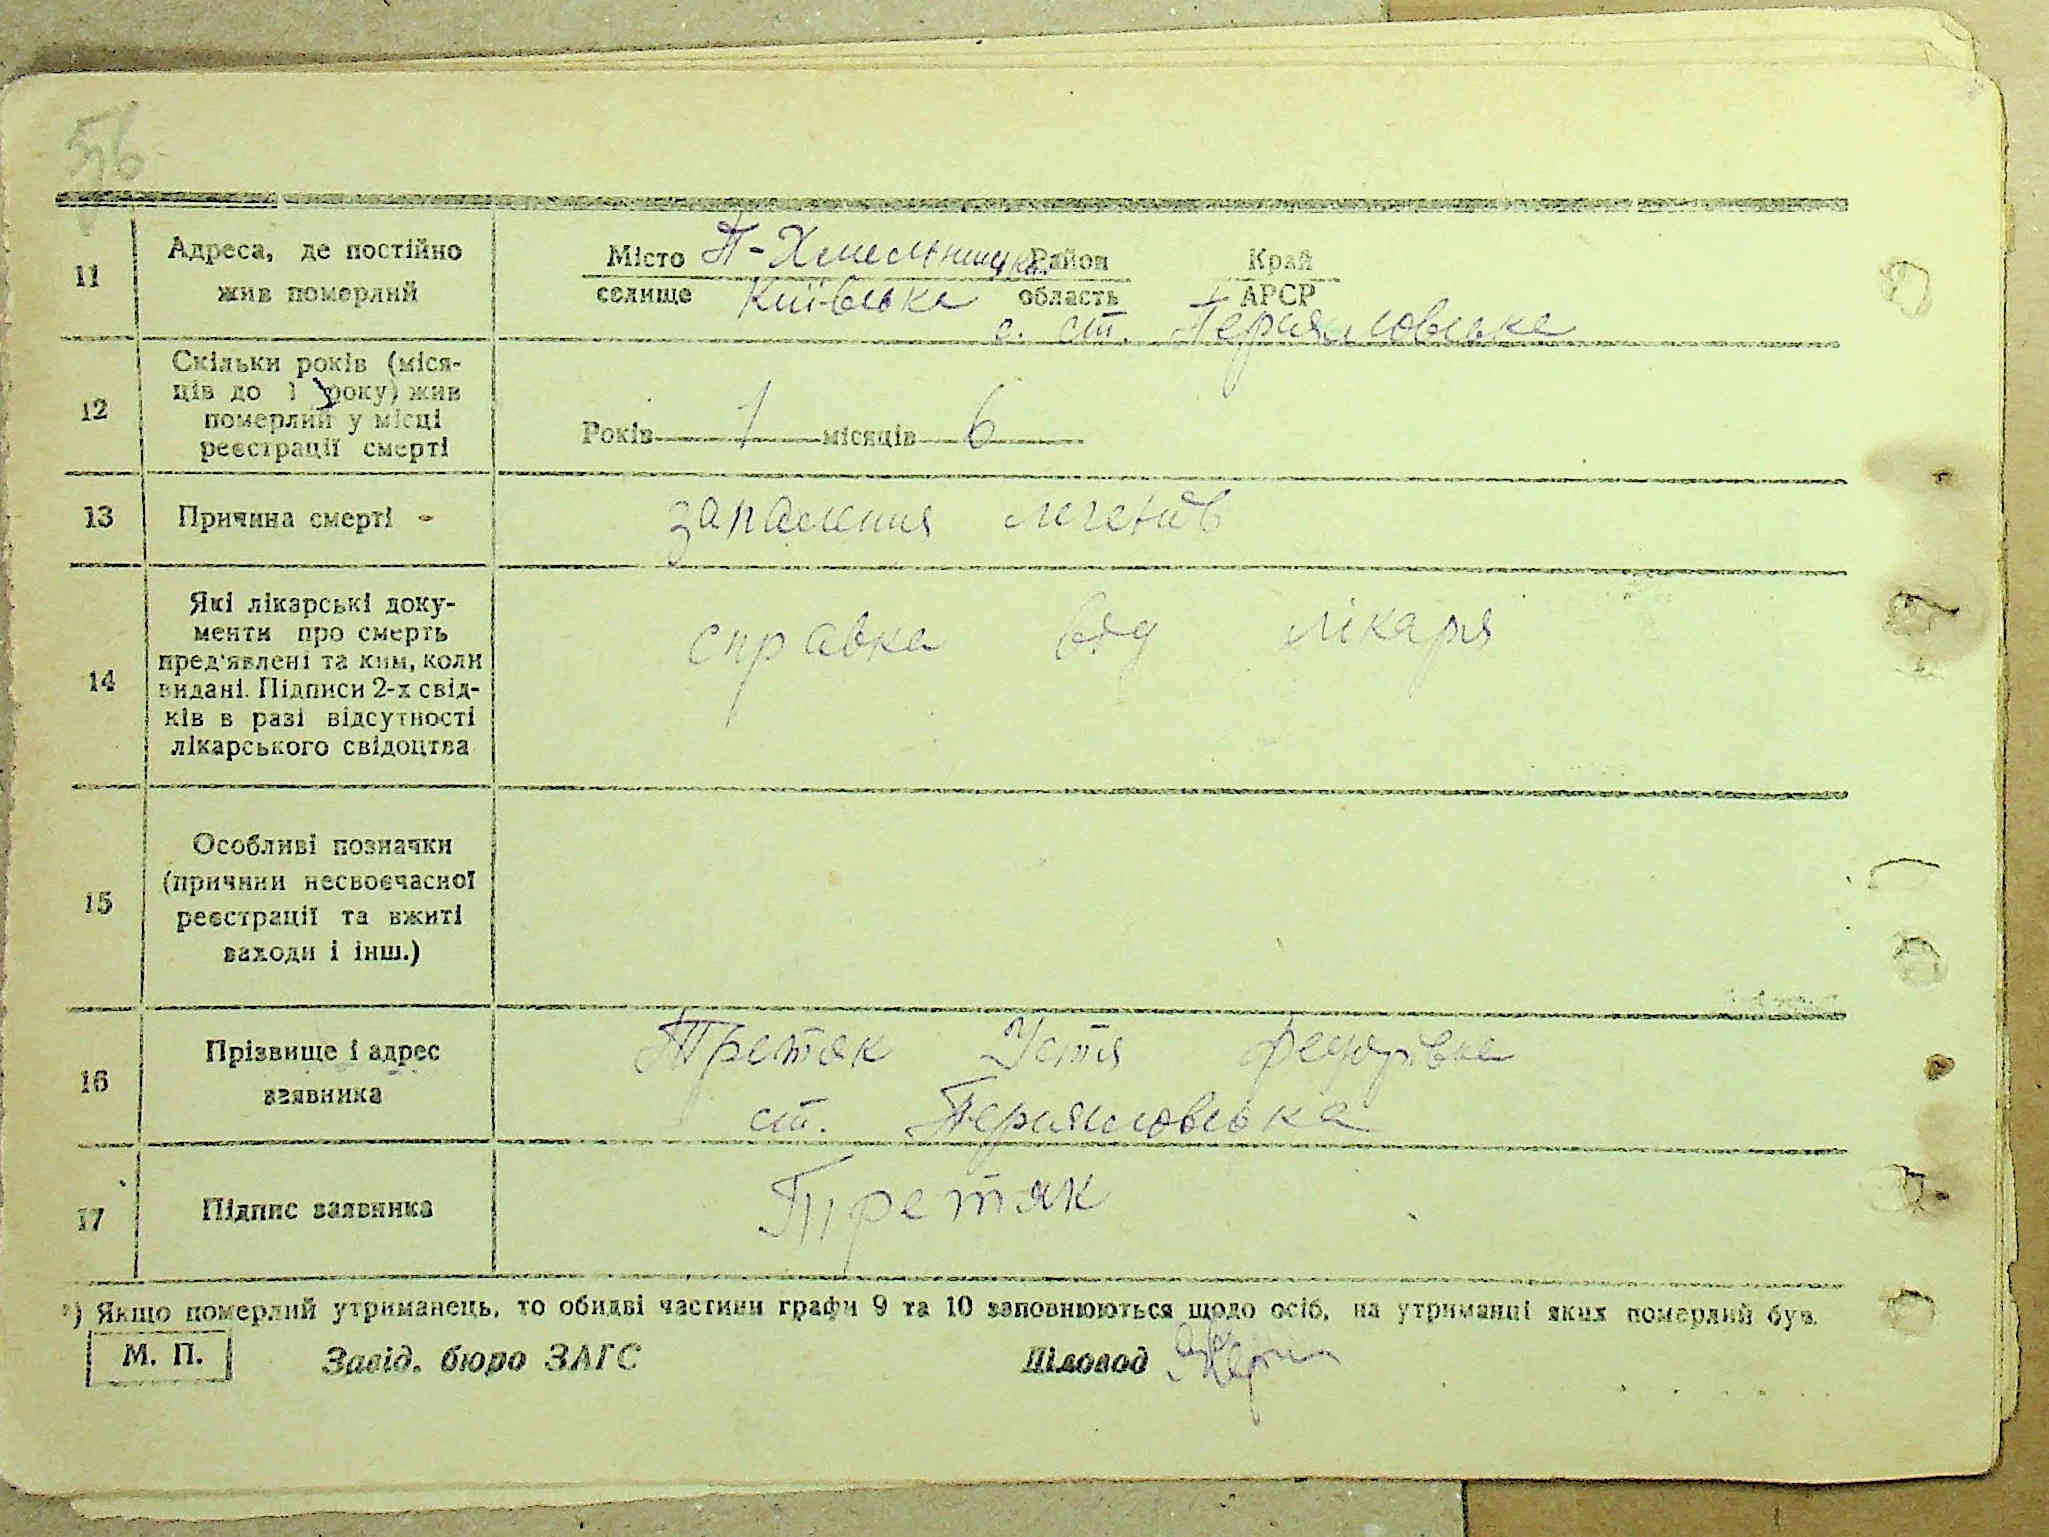 56
11 Адреса, де постійно жив померлий
Місто П-Хмельницьк. Район Край
селище Київська область АРСР
с. ст.
12 Скільки років (місяців до 1 року) жив померлий у місці реєстрації смерті
Років 1 місяців 6
13 Причина смерті - запалення легенів
14 Які лікарські документи про смерть пред'явлені та ким, коли видані. Підписи 2-х свідків в разі відсутності лікарського свідоцтва
справка від лікаря
15 Особливі позначки (причини несвоєчасної реєстрації та вжиті заходи і інш.)
16 Прізвище і адрес заявника
Третяк Устя Федорівна
ст.
17 Підпис заявника Третяк
*) Якщо померлий утриманець, то обидві частини графи 9 та 10 заповнюються щодо осіб, на утриманні яких померлий був.
М. П. Завід. бюро ЗАГС Діловод